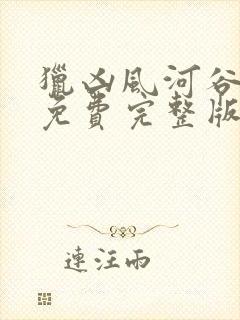 獵凶風河谷
免費完整版
連汪雨